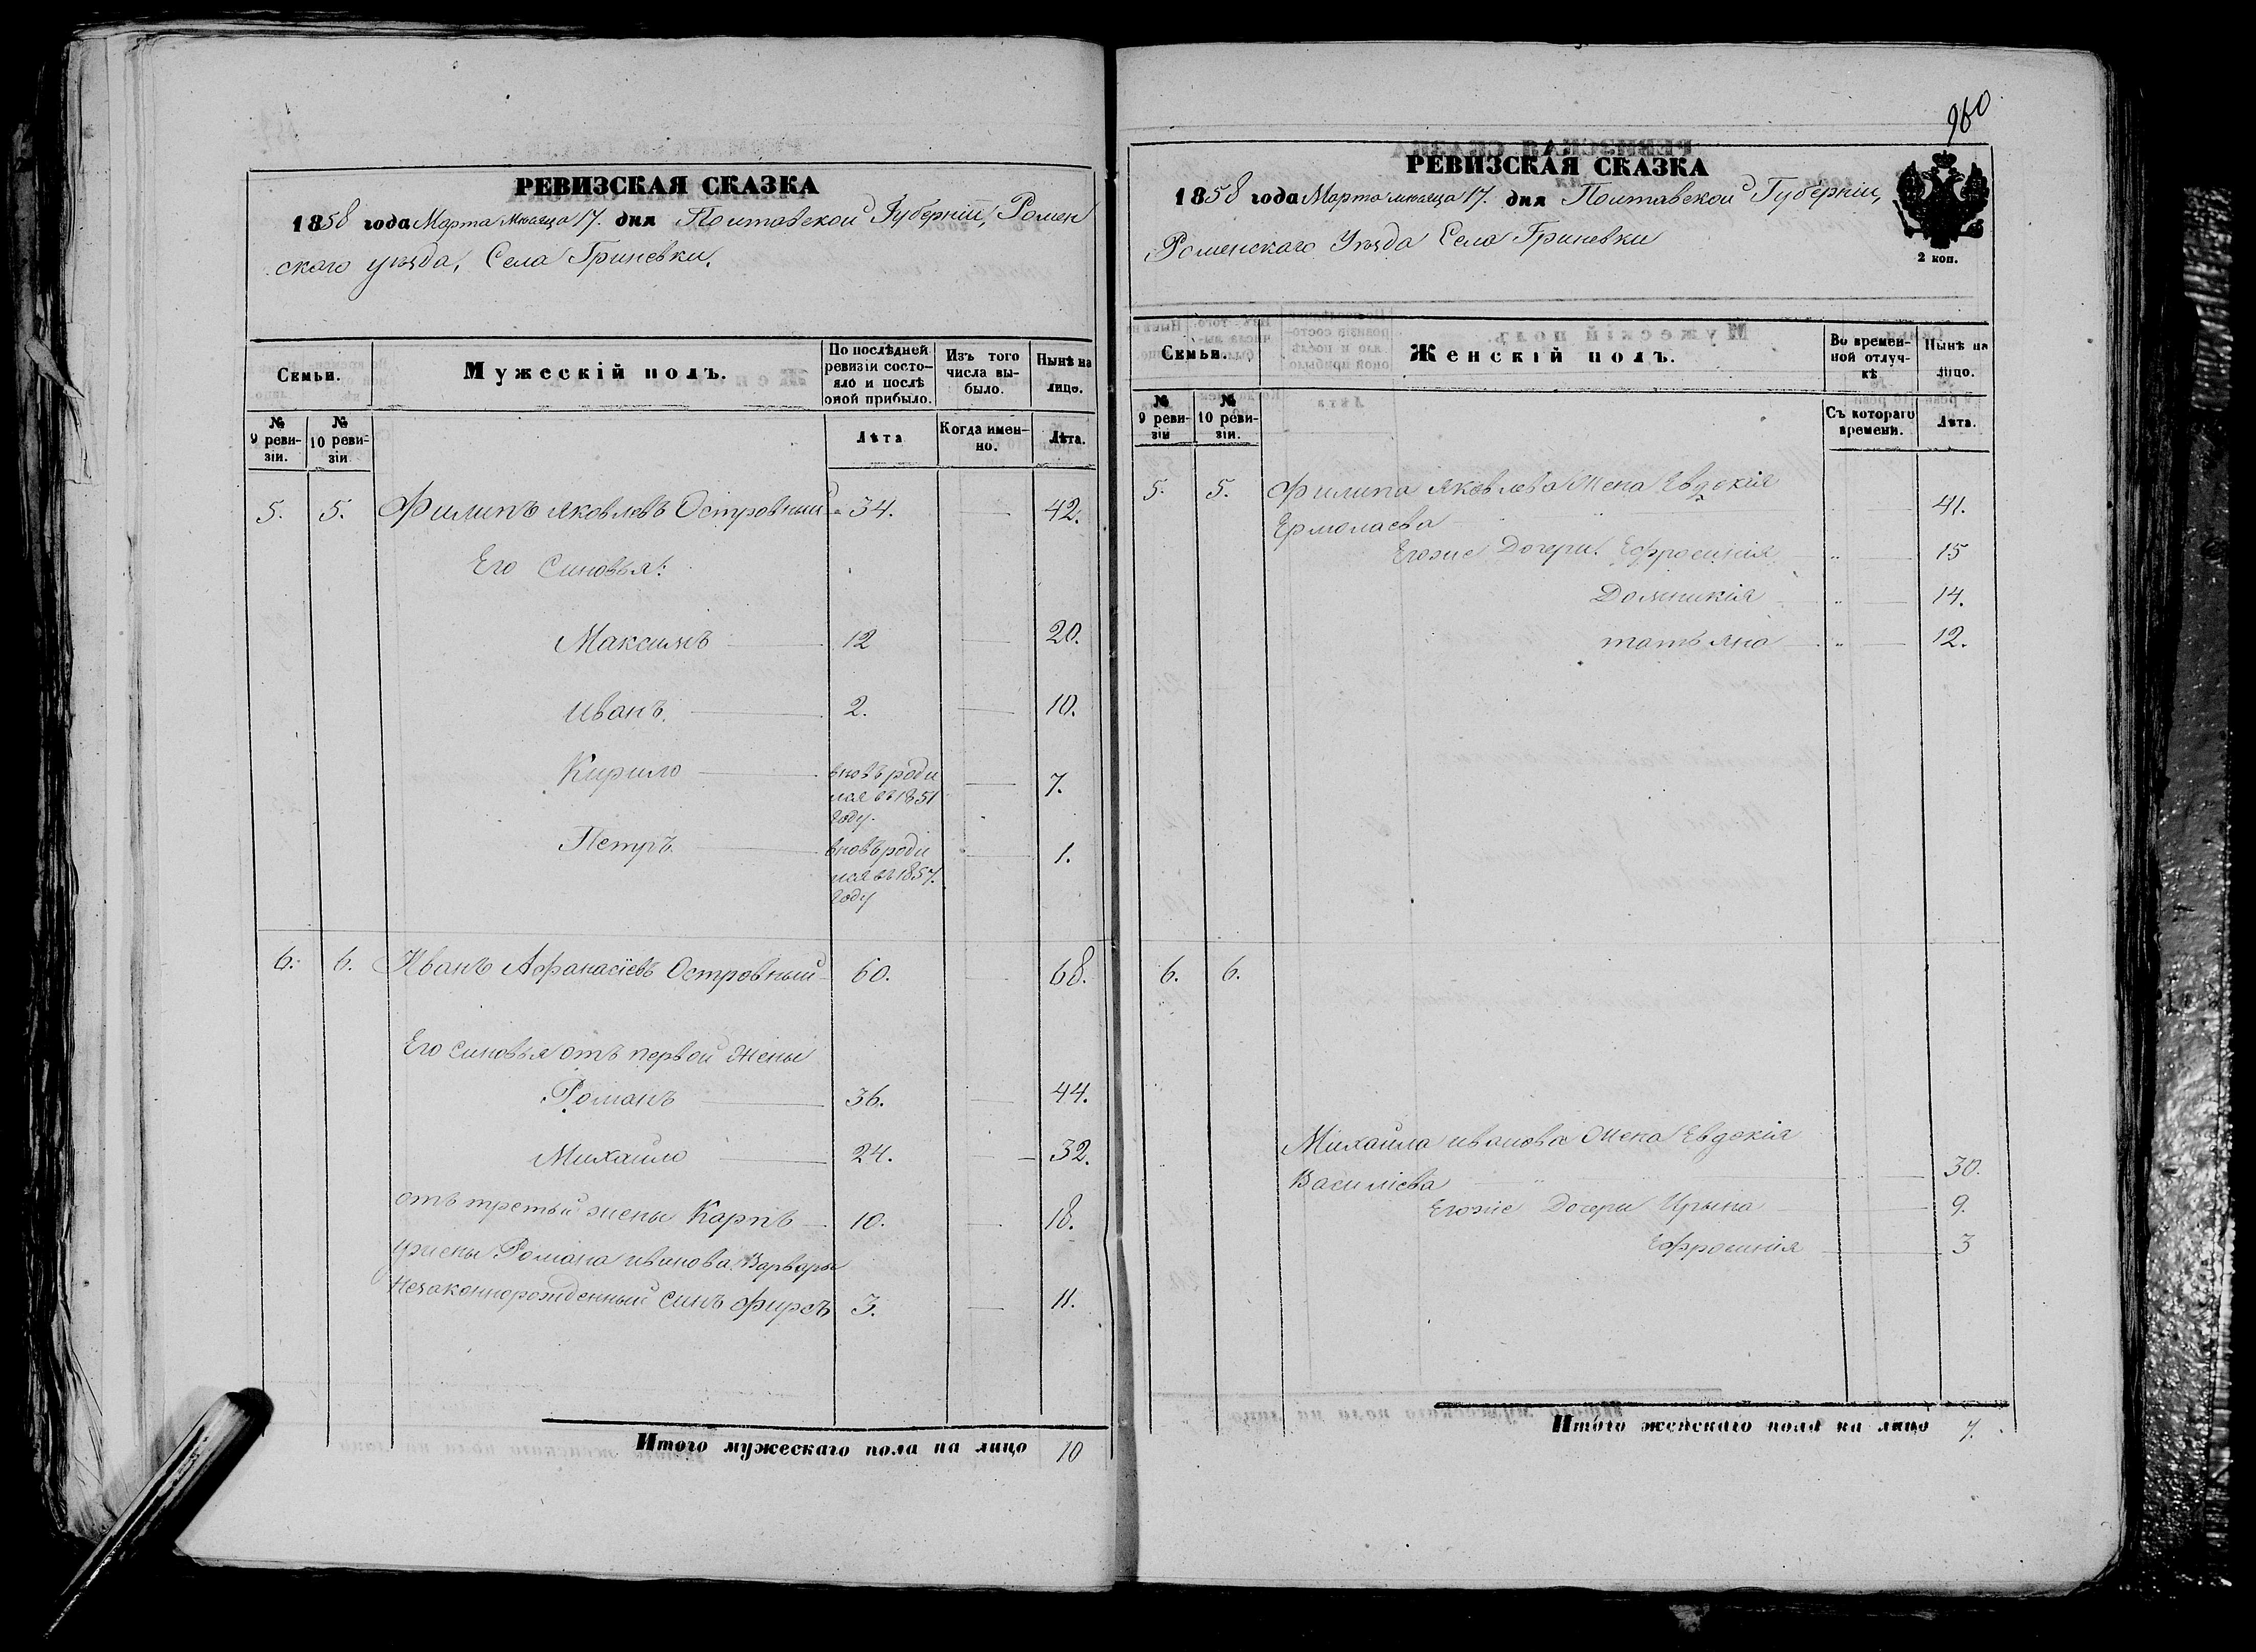 РЕВИЗСКАЯ СКАЗКА
1858 года Марта месяца 17. дня Полтавской Губерніи, Ромен
ского уезда, Села Гриневки.
Семьи.
Мужескій полъ.
По послѣдней ревизіи состояло и послѣ оной прибыло.
Изъ того числа выбыло.
Нынѣ на лицо.
№ 9 ревизіи.
№ 10 ревизіи
Лѣта
Когда именно.
Лѣта.
5. 5. Филипъ Яковлевъ Островный 34. 42.
Его Синовья:
Максимъ 12 20.
Иванъ. 2. 10.
Кирило вновь роди 7.
лся въ 1851
году.
Петръ вновь роди 1.
лся въ 1857.
году
6. 6. Иванъ Афанасіевъ Островный 60. 68.
Его синовья отъ первой жены
Романъ 36. 44.
Михайло 24. 32.
отъ третьей жены Карпъ 10. 18.
Романа Иванова Варвары
Незаконнорожденный синъ Фирсъ 3. 11.
Итого мужескаго пола на лицо 10
960
РЕВИЗСКАЯ СКАЗКА
1858 года Марта месяца 17. дня Полтавской Губерніи,
Роменского Уезда Села Гриневки
2 коп.
Семьи.
Женскій полъ.
Во временной отлучкѣ
Нынѣ на лицо.
№ 9 ревизіи
№ 10 ревизіи.
Съ котораго времени.
Лѣта.
5. 5. Филипа Яковлева жена Евдокія 41.
Ермолаева
Егоже Дочери. Ефросинія 15
Домникія 14.
татьяна 12.
6. 6.
Михайла иванова жена Евдокія
Василіева 30.
Егоже Дочери Ирына 9.
Ефросинія 3
Итого женскаго пола на лицо 7.